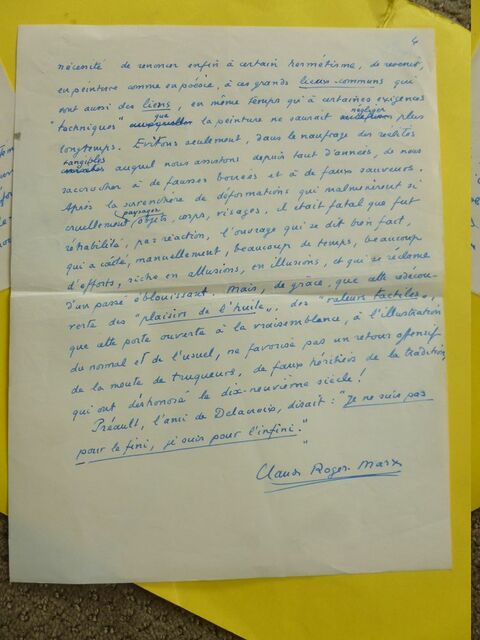 4
nécessité de renoncer enfin à certain hermétisme, de revenir,
en peinture comme en poésie, à ces grands lieux-communs qui
sont aussi des liens, en même temps qu'à certaines exigences
"techniques" que la peinture ne saurait négliger plus
longtemps. Evitons seulement, dans le naufrage des réalités
tangibles auquel nous assistons depuis tant d'années, de nous
raccrocher à de fausses bouées et à de faux sauveurs.
Après la surenchère de déformations qui malmenèrent si
cruellement paysages, objets, corps, visages, il était fatal que fut
réhabilité, par réaction, l'ouvrage qui se dit bien fait,
qui a coûté, manuellement, beaucoup de temps, beaucoup
d'efforts, riche en allusions, en illusions, et qui se réclame
d'un passé éblouissant. Mais, de grâce, que cette redécou-
verte des "plaisirs de l'huile", des "valeurs tactiles",
que cette porte ouverte à la vraisemblance, à l'illustration
du normal et de l'usuel, ne favorise pas un retour offensif
de la meute de truqueurs, de faux héritiers de la tradition,
qui ont déshonoré le dix-neuvième siècle!
Préault, l'ami de Delacroix, disait: "Je ne suis pas
pour le fini, je suis pour l'infini."
Claude Roger-Marx